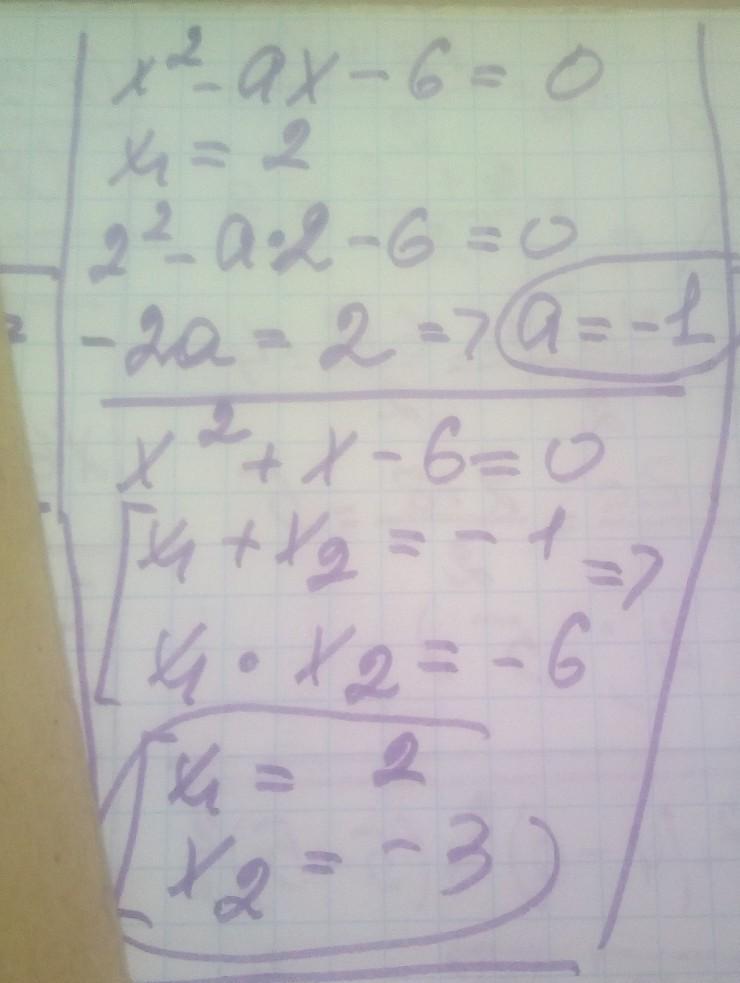 x² - ax - 6 = 0
x₁ = 2
2² - a·2 - 6 = 0
-2a = 2 => a = -1
x² + x - 6 = 0
[x₁ + x₂ = -1 =>
x₁ · x₂ = -6
[x₁ = 2
x₂ = -3